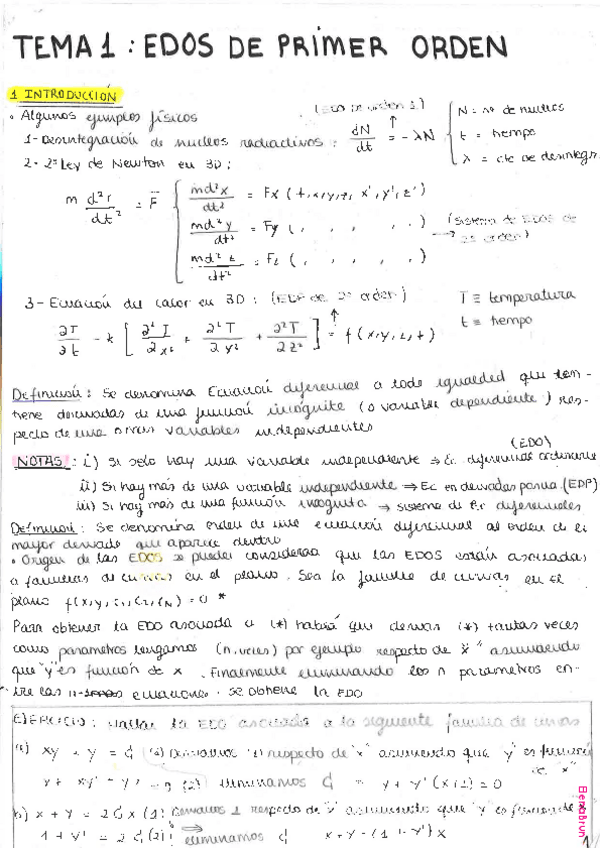 TEMA 1 : EDOS DE PRIMER ORDEN
1 INTRODUCCIÓN
• Algunos ejemplos físicos (EDO de orden 1)
1- Desintegración de nucleos radiactivos : dN/dt = -λN { N = nº de nucleos
t = tiempo
λ = cte de desintegr.
2- 2ª Ley de Newton en 3D :
m d²r/dt² = F { md²x/dt² = Fx (t,x,y,z, x',y',z')
md²y/dt² = Fy ( , , , , , ) → (Sistema de EDOS de 2º orden)
md²z/dt² = Fz ( , , , , , )
3- Ecuación del calor en 3D : (EDP de 2º orden) T ≡ temperatura
∂T/∂t - k [ ∂²T/∂x² + ∂²T/∂y² + ∂²T/∂z² ] = f(x,y,z,t) t ≡ tiempo
Definición : Se denomina Ecuación diferencial a toda igualdad que con-
tiene derivadas de una función incógnita (o variable dependiente) res-
pecto de una o más variables independientes
NOTAS : i) Si solo hay una variable independiente ⇒ Ec. diferencial ordinaria (EDO)
ii) Si hay más de una variable independiente ⇒ Ec en derivadas (EDP)
iii) Si hay más de una función incognita → sistema de Ec diferenciales
Definición : Se denomina orden de una ecuación diferencial al orden de la
mayor derivada que aparece dentro
• Origen de las EDOS se puede considerar que las EDOS están asociadas
a familias de curvas en el plano. Sea la familia de curvas en el
plano f(x,y, = 0 *
Para obtener la EDO asociada a (*) habrá que derivar (*) tantas veces
como parametros tengamos (n veces) por ejemplo respecto de "x" asumiendo
que "y" es función de x. Finalmente eliminando los n parametros en-
tre las ecuaciones. se obtiene la EDO
EJERCICIO : Hallar la EDO asociada a la siguiente familia de curvas
a) xy + y = C₁ Derivamos respecto de "x" asumiendo que y es función
y + xy' + y' = 0 (2) eliminamos C₁ y + y'(x+1) = 0 de "x"
b) x + y = 2C₁x (1) Derivamos 1 respecto de "x" asumiendo que "y" es función de
1 + y' = 2C₁ (2) ⇒ eliminamos C₁ x+y = (1+y')x
ElenaBrun
1